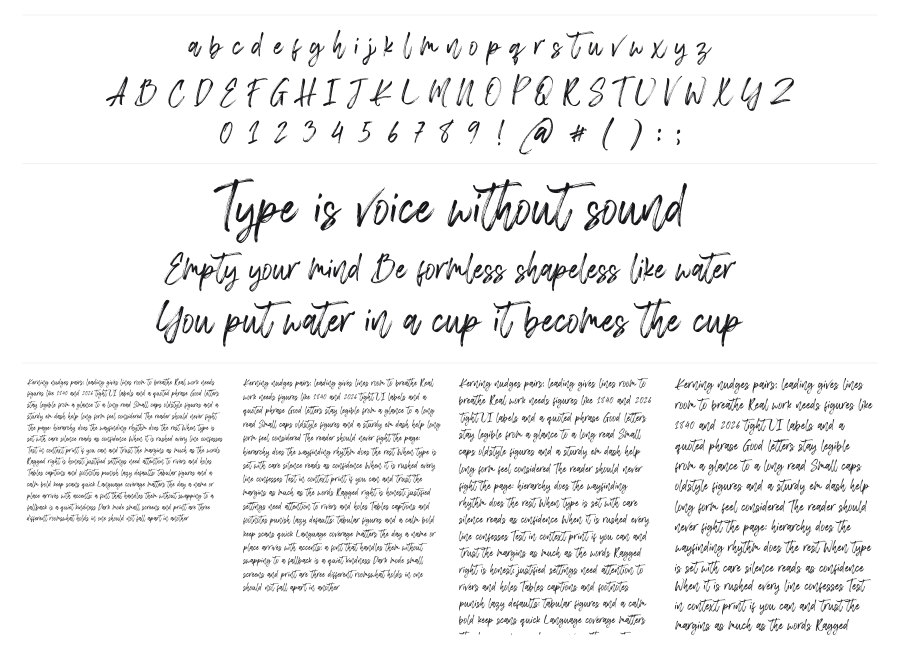 a b c d e f g h i j k l m n o p q r s t u v w x y z
A B C D E F G H I J K L M N O P Q R S T U V W X Y Z
0 1 2 3 4 5 6 7 8 9 ! @ # ( ) : ;
Type is voice without sound
Empty your mind Be formless shapeless like water
You put water in a cup it becomes the cup
Kerning nudges pairs: leading gives lines room to breathe Real work needs
figures like 1840 and 2026 tight UI labels and a quoted phrase Good letters
stay legible from a glance to a long read Small caps oldstyle figures and a
sturdy em dash help long form feel considered The reader should never fight
the page: hierarchy does the wayfinding rhythm does the rest When type is
set with care silence reads as confidence When it is rushed every line confesses
Test in context print if you can and trust the margins as much as the words
Ragged right is honest: justified settings need attention to rivers and holes
Tables captions and footnotes punish lazy defaults: tabular figures and a
calm bold keep scans quick Language coverage matters the day a name or
place arrives with accents: a font that handles them without swapping to a
fallback is a quiet kindness Dark mode small screens and print are three
different rooms:what holds in one should not fall apart in another
Kerning nudges pairs: leading gives lines room to breathe Real
work needs figures like 1840 and 2026 tight UI labels and a
quoted phrase Good letters stay legible from a glance to a long
read Small caps oldstyle figures and a sturdy em dash help long
form feel considered The reader should never fight the page:
hierarchy does the wayfinding rhythm does the rest When type is
set with care silence reads as confidence When it is rushed every
line confesses Test in context print if you can and trust the
margins as much as the words Ragged right is honest: justified
settings need attention to rivers and holes Tables captions and
footnotes punish lazy defaults: tabular figures and a calm bold
keep scans quick Language coverage matters the day a name or
place arrives with accents: a font that handles them without
swapping to a fallback is a quiet kindness Dark mode small
screens and print are three different rooms:what holds in one
should not fall apart in another
Kerning nudges pairs: leading gives lines room to
breathe Real work needs figures like 1840 and 2026
tight UI labels and a quoted phrase Good letters
stay legible from a glance to a long read Small
caps oldstyle figures and a sturdy em dash help
long form feel considered The reader should never
fight the page: hierarchy does the wayfinding
rhythm does the rest When type is set with care
silence reads as confidence When it is rushed every
line confesses Test in context print if you can and
trust the margins as much as the words Ragged
right is honest: justified settings need attention to
rivers and holes Tables captions and footnotes
punish lazy defaults: tabular figures and a calm
bold keep scans quick Language coverage matters
Kerning nudges pairs: leading gives lines
room to breathe Real work needs figures like
1840 and 2026 tight UI labels and a
quoted phrase Good letters stay legible
from a glance to a long read Small caps
oldstyle figures and a sturdy em dash help
long form feel considered The reader should
never fight the page: hierarchy does the
wayfinding rhythm does the rest When type
is set with care silence reads as confidence
When it is rushed every line confesses Test
in context print if you can and trust the
margins as much as the words Ragged